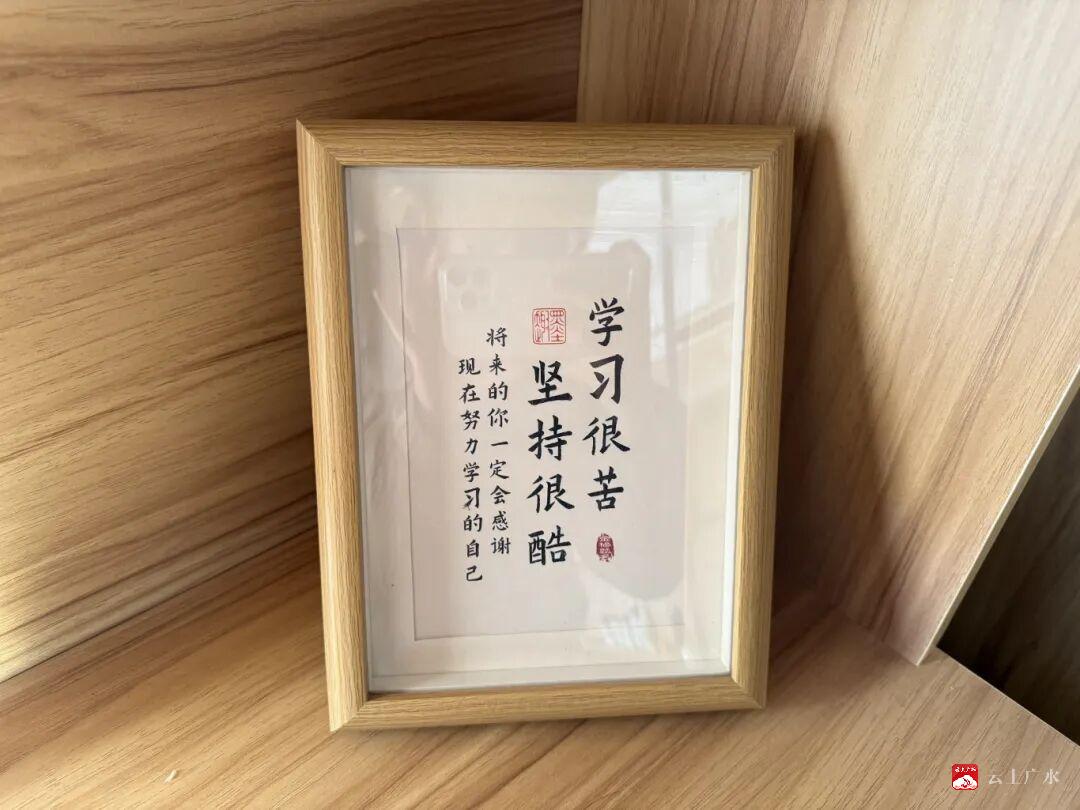 学习很苦
坚持很酷
将来的你一定会感谢
现在努力学习的自己
云上广水